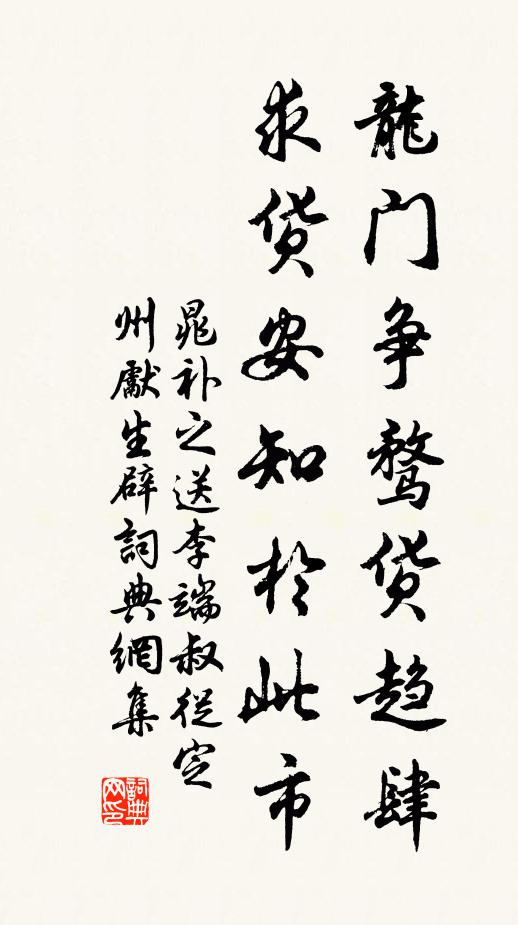 龍门争鹜貨趋肆
求貨安知於此市
晁补之送李端叔從定
州獻生辟詞典網集
詞典
网印